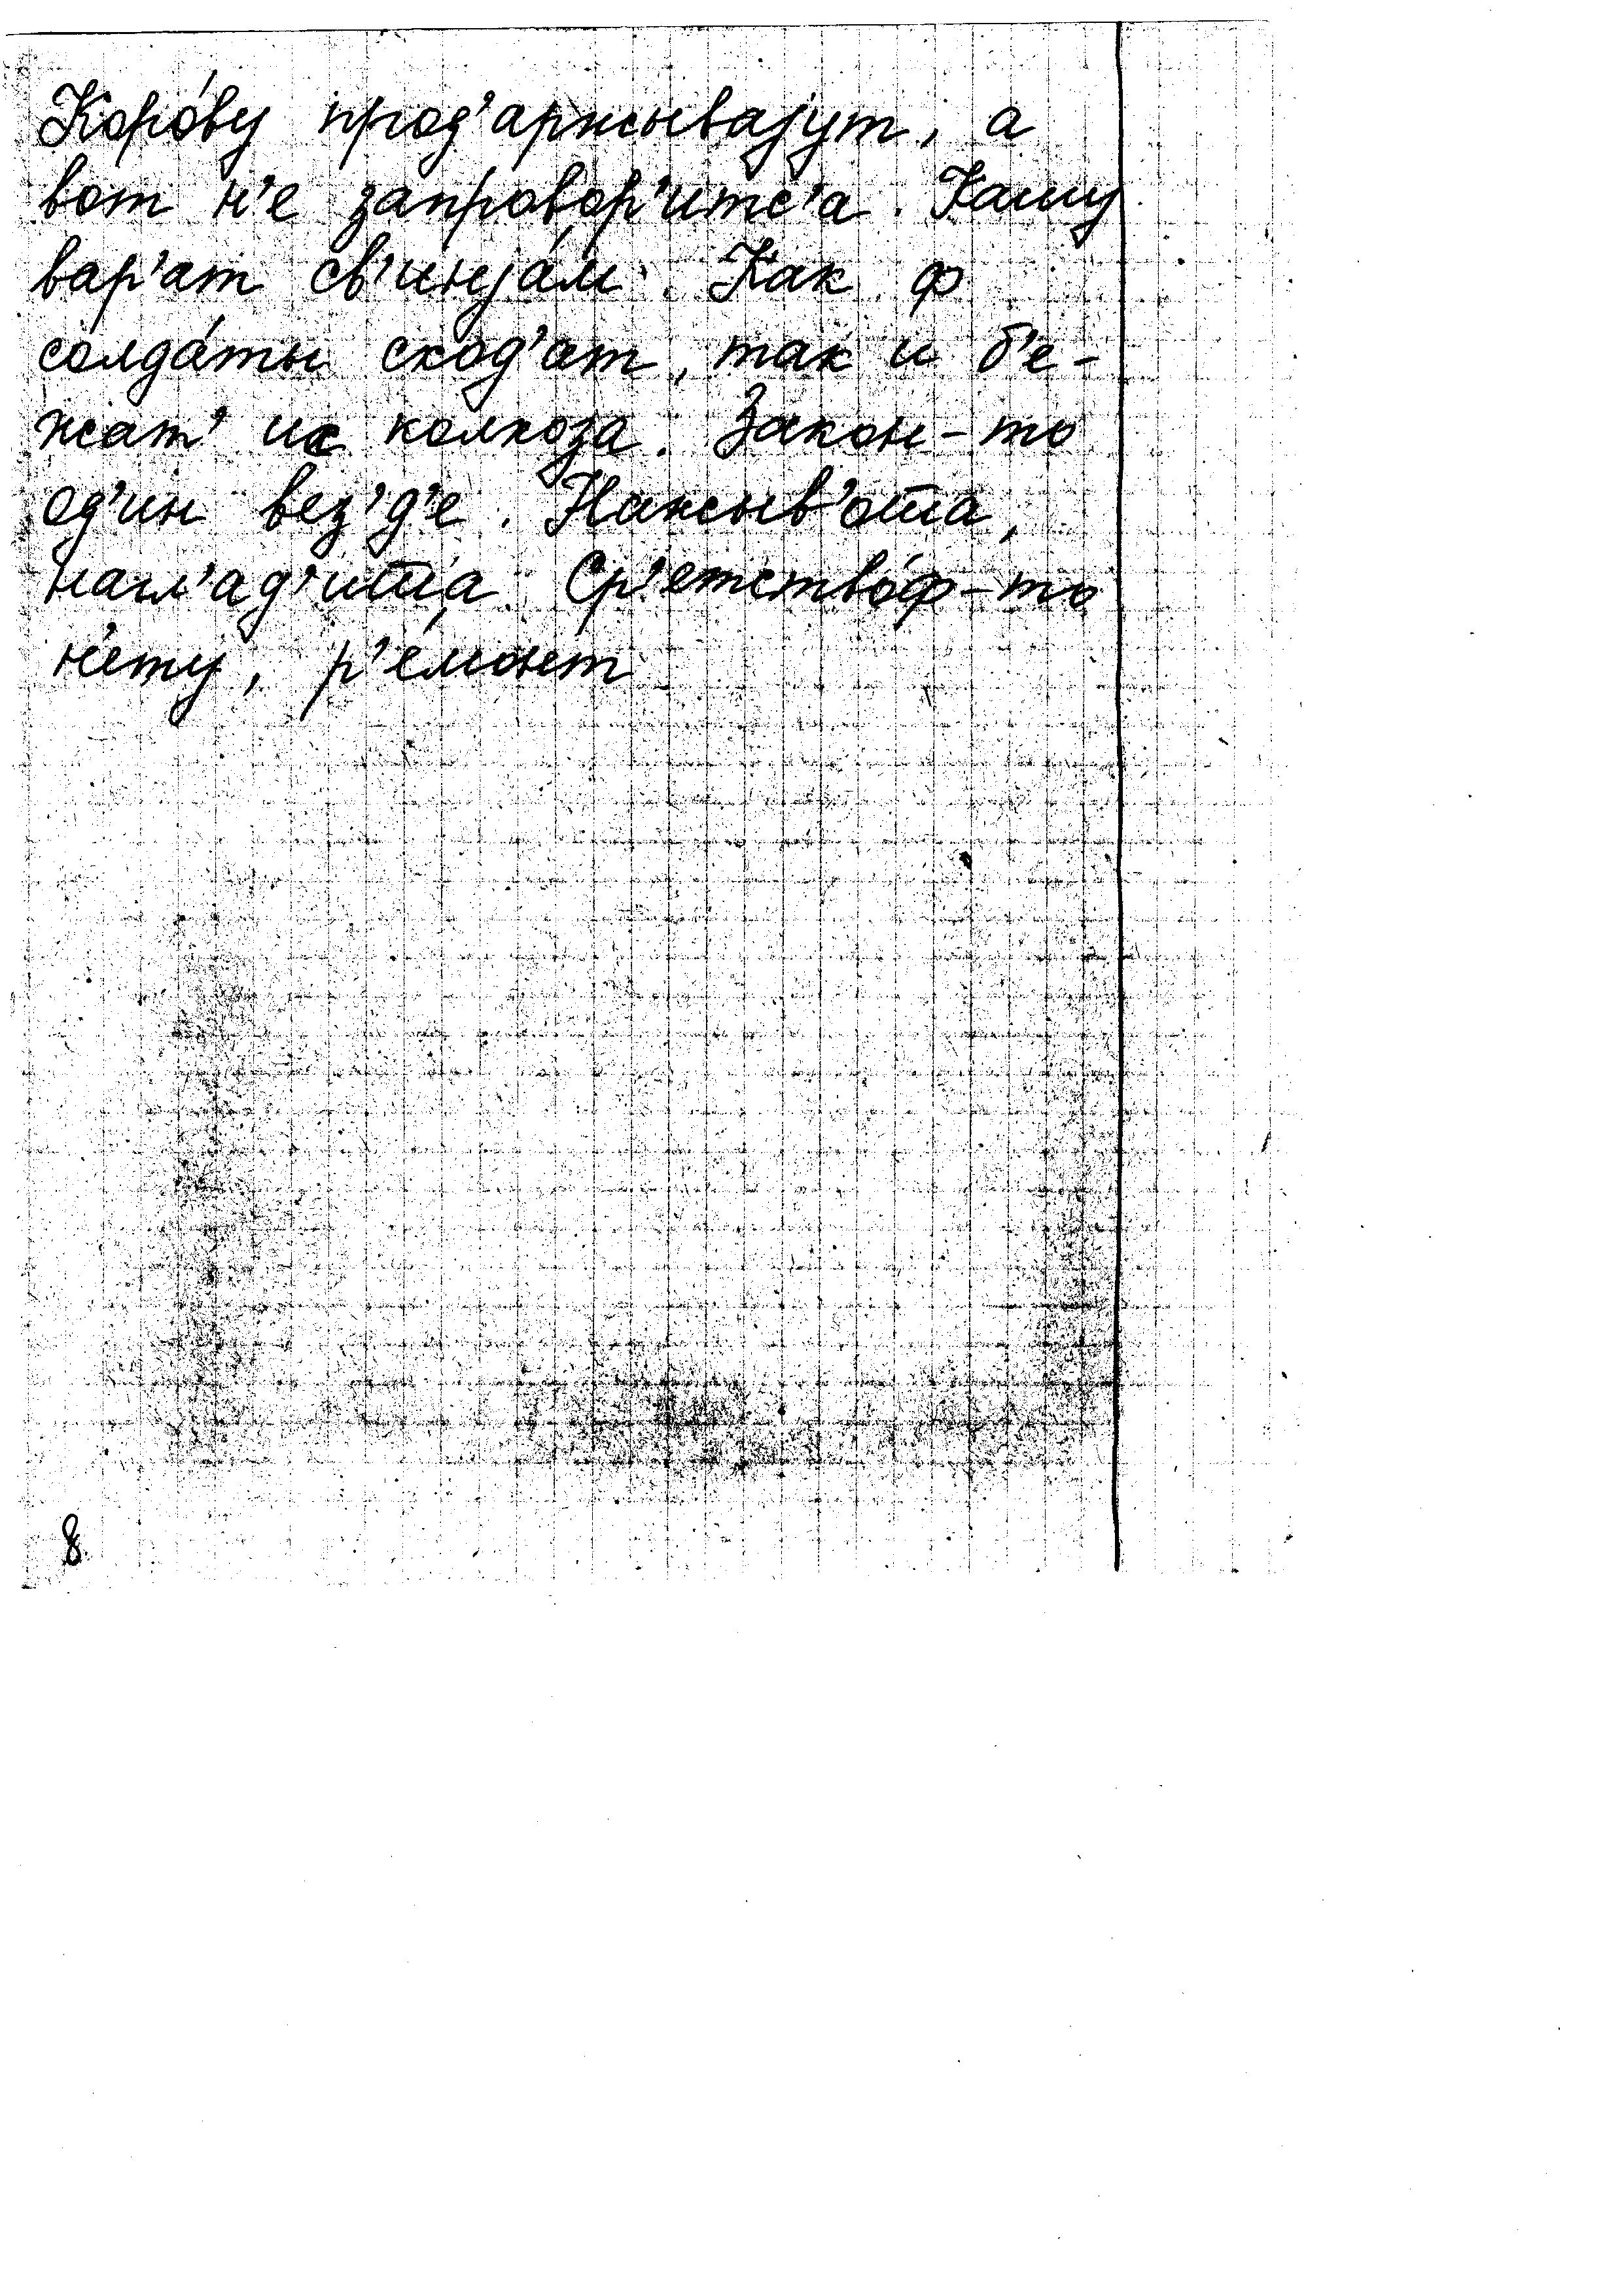 Коро́ву прод'аржывајут, а
вот н'е запровор'итс'а. Кашу
вар'ат св'инја́м. Как ф
солда́ты сход'ат, так и б'е-
жат' ис колхоза. Закон-то
од'ин вез'д'е. Нажыв'о̄т̄а,
нагл'ад'ит̄а. Ср'етство́ф-то
н'ету, р'емонт
8.